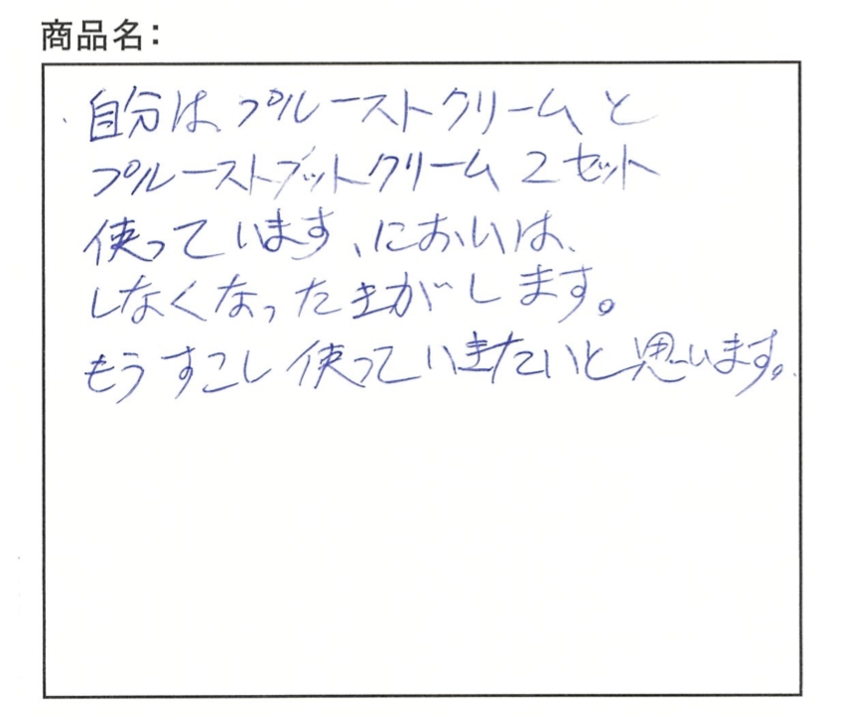 商品名：
自分は、プルーストクリームと
プルーストブットクリーム2セット
使っています、においは、
しなくなったきがします。
もうすこし使っていきたいと思います。